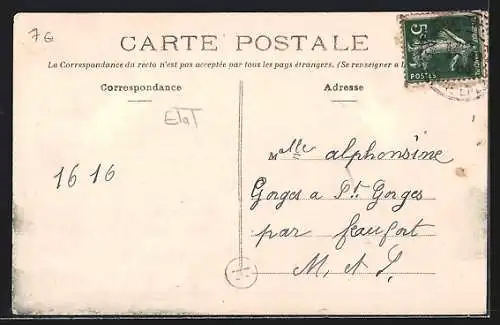 76
CARTE POSTALE
La Correspondance du recto n'est pas acceptée par tous les pays étrangers. (Se renseigner à
Correspondance
Adresse
5c
POSTES
Etat
Melle alphonsine
1616
Gorges a St Gorges
par feaufort
M. et L.